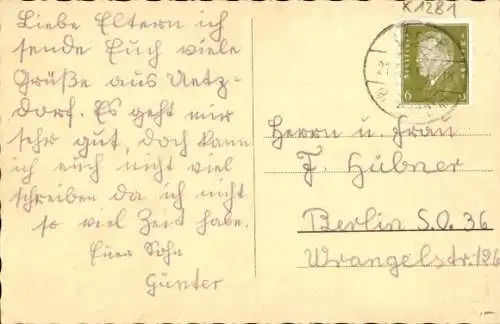 K1281
Liebe Eltern ich
sende Euch viele
Grüße aus Uetz-
dorf. Es geht mir
sehr gut, doch kann
ich euch nicht viel
schreiben da ich nicht
so viel Zeit habe.
Euer Sohn
Günter
6
Herrn u. Frau
F. Hübner
Berlin S.O. 36
Wrangelstr. 126